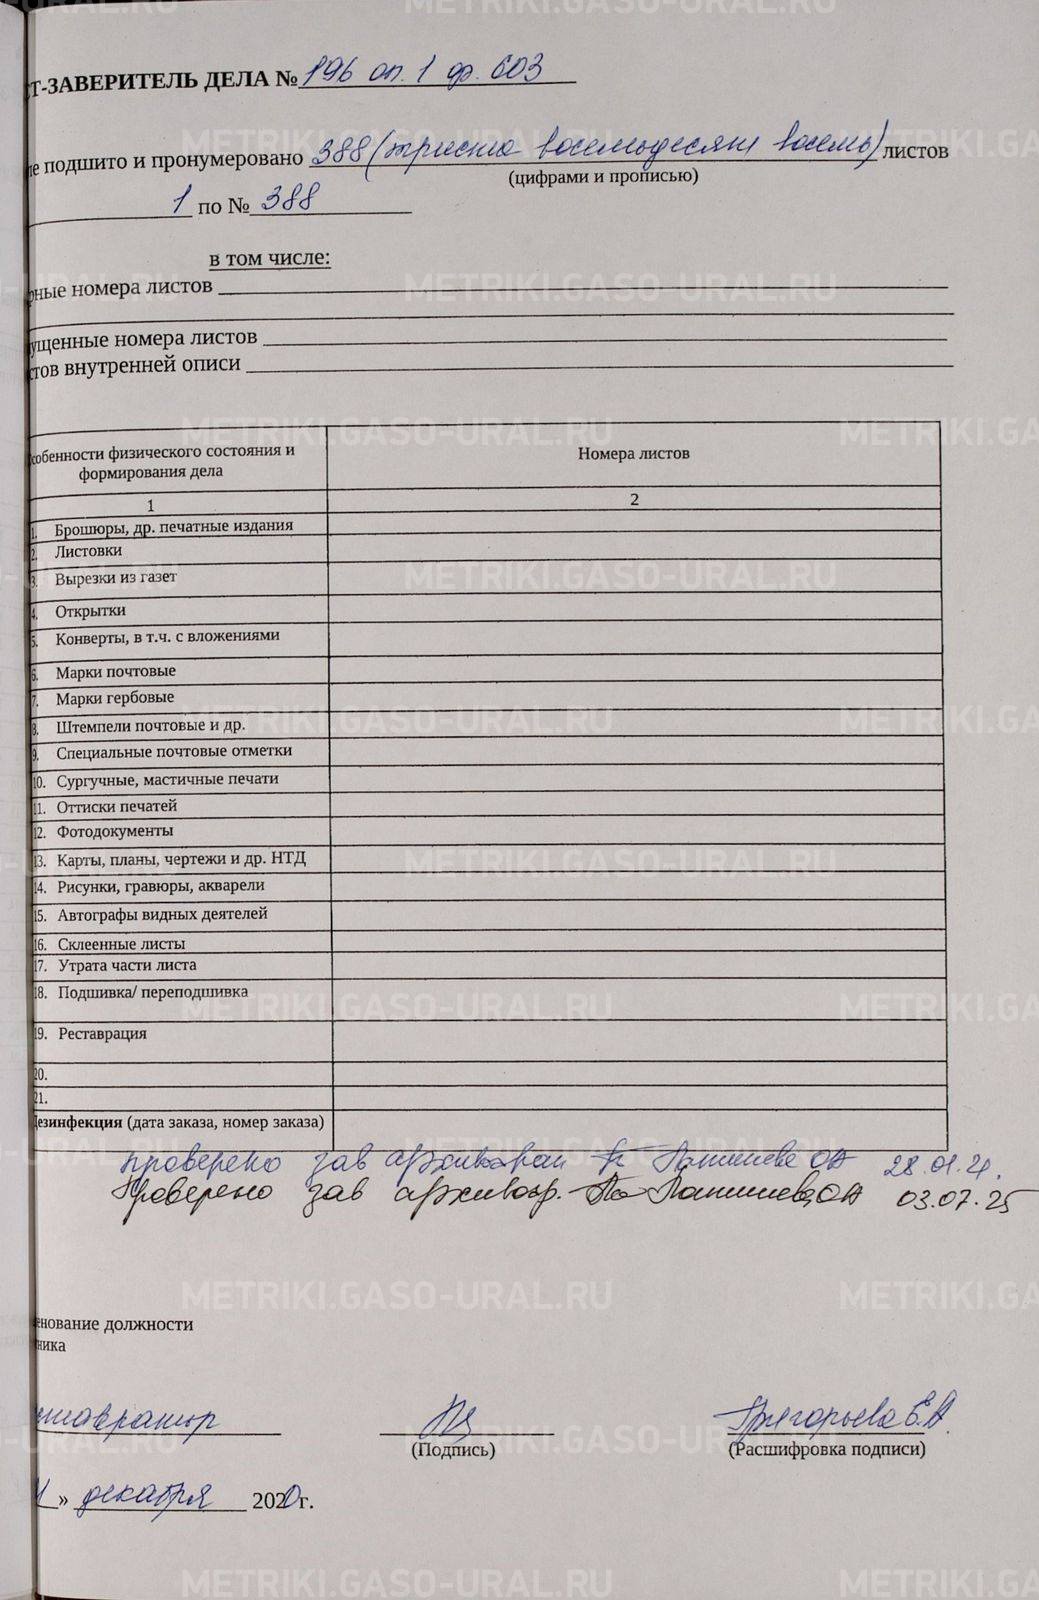 Т-ЗАВЕРИТЕЛЬ ДЕЛА № 196 оп. 1 ф. 603
ле подшито и пронумеровано 388 (триста восемьдесят восемь) листов
(цифрами и прописью)
1 по № 388
в том числе:
рные номера листов
ущенные номера листов
тов внутренней описи
собенности физического состояния и формирования дела Номера листов
1 2
1. Брошюры, др. печатные издания
2. Листовки
3. Вырезки из газет
4. Открытки
5. Конверты, в т.ч. с вложениями
6. Марки почтовые
7. Марки гербовые
8. Штемпели почтовые и др.
9. Специальные почтовые отметки
10. Сургучные, мастичные печати
11. Оттиски печатей
12. Фотодокументы
13. Карты, планы, чертежи и др. НТД
14. Рисунки, гравюры, акварели
15. Автографы видных деятелей
16. Склеенные листы
17. Утрата части листа
18. Подшивка/ переподшивка
19. Реставрация
20.
21.
Дезинфекция (дата заказа, номер заказа)
проверено зав архивохран 28.01.21.
Проверено зав архивохр. 03.07.25
енование должности
ника
ставратор Григорьева Е.А.
(Подпись) (Расшифровка подписи)
» декабря 2020 г.
METRIKI.GASO-URAL.RU